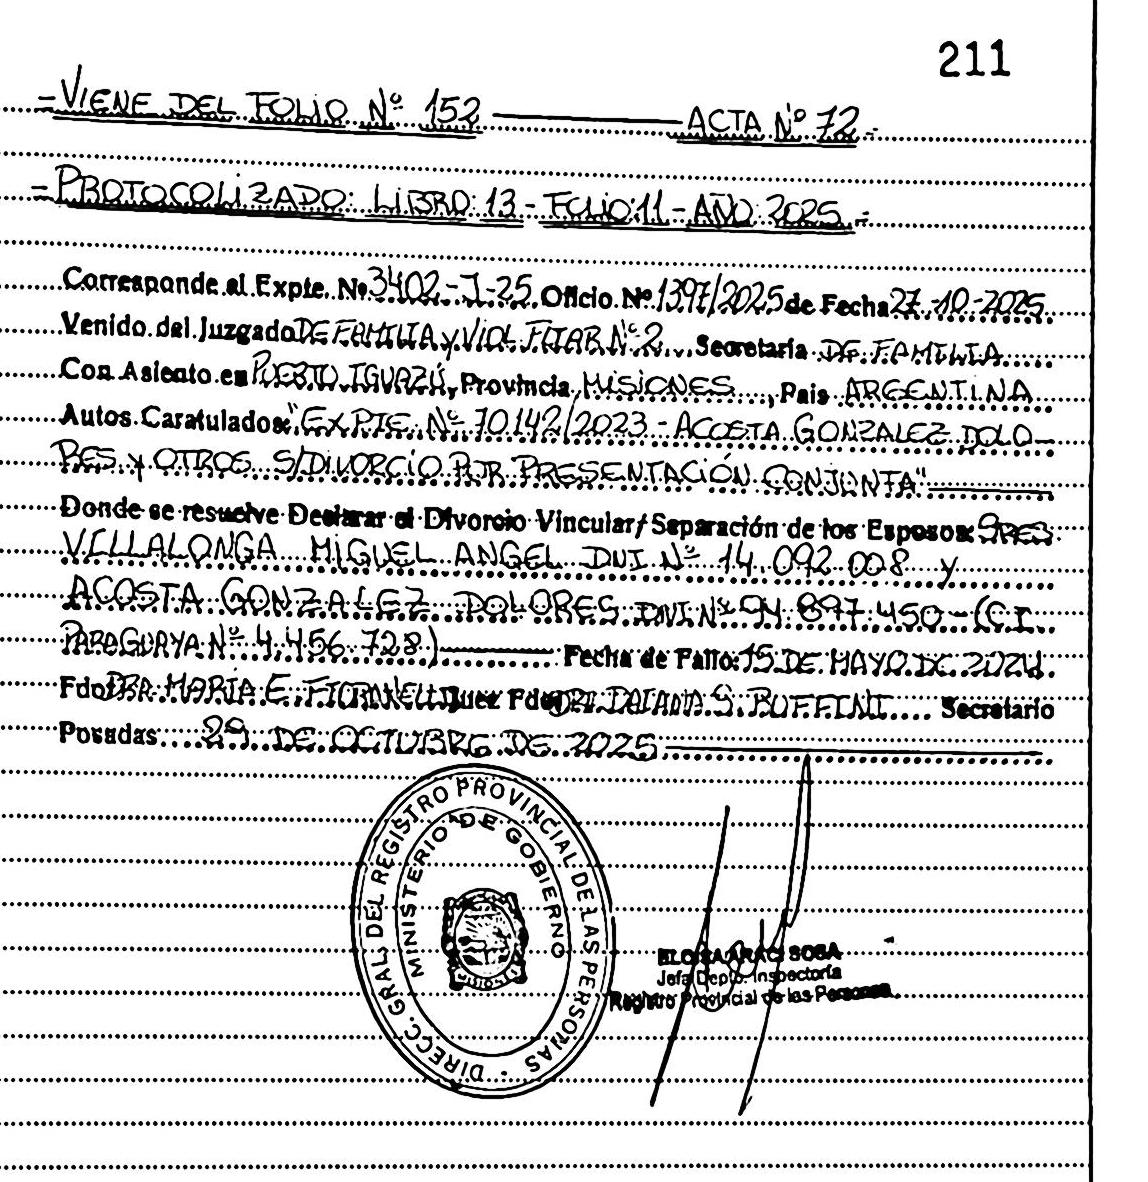 211
=VIENE DEL FOLIO Nº 152 ——— ACTA Nº 72=
=PROTOCOLIZADO: LIBRO: 13 - FOLIO: 11 - AÑO 2025=
Corresponde al Expte. Nº 3402-J-25 Oficio Nº 1397/2025 de Fecha 27-10-2025
Venido del Juzgado DE FAMILIA y VIOL FLIAR Nº 2 Secretaría DE FAMILIA
Con Asiento en PUERTO IGUAZÚ, Provincia MISIONES, País ARGENTINA
Autos Caratulados: "EXPTE. Nº 70142/2023 - ACOSTA GONZALEZ DOLO-
RES y OTROS S/DIVORCIO POR PRESENTACIÓN CONJUNTA"
Donde se resuelve Declarar el Divorcio Vincular/Separación de los Esposos: SRES
VILLALONGA MIGUEL ANGEL DNI Nº 14.092.008 y
ACOSTA GONZALEZ DOLORES DNI Nº 94.897.450 - (C.I.
PARAGUAYA Nº 4.456.728) Fecha de Fallo: 15 DE MAYO DE 2024
Fdo: DRA MARIA E. Juez Fdo: DRA DAIANA S. RUFFINI Secretario
Posadas 29 DE OCTUBRE DE 2025
DIRECC. GRAL. DEL REGISTRO PROVINCIAL DE LAS PERSONAS
MINISTERIO DE GOBIERNO
ELOISA ARACI SOSA
Jefa Depto. Inspectoría
Registro Provincial de las Personas